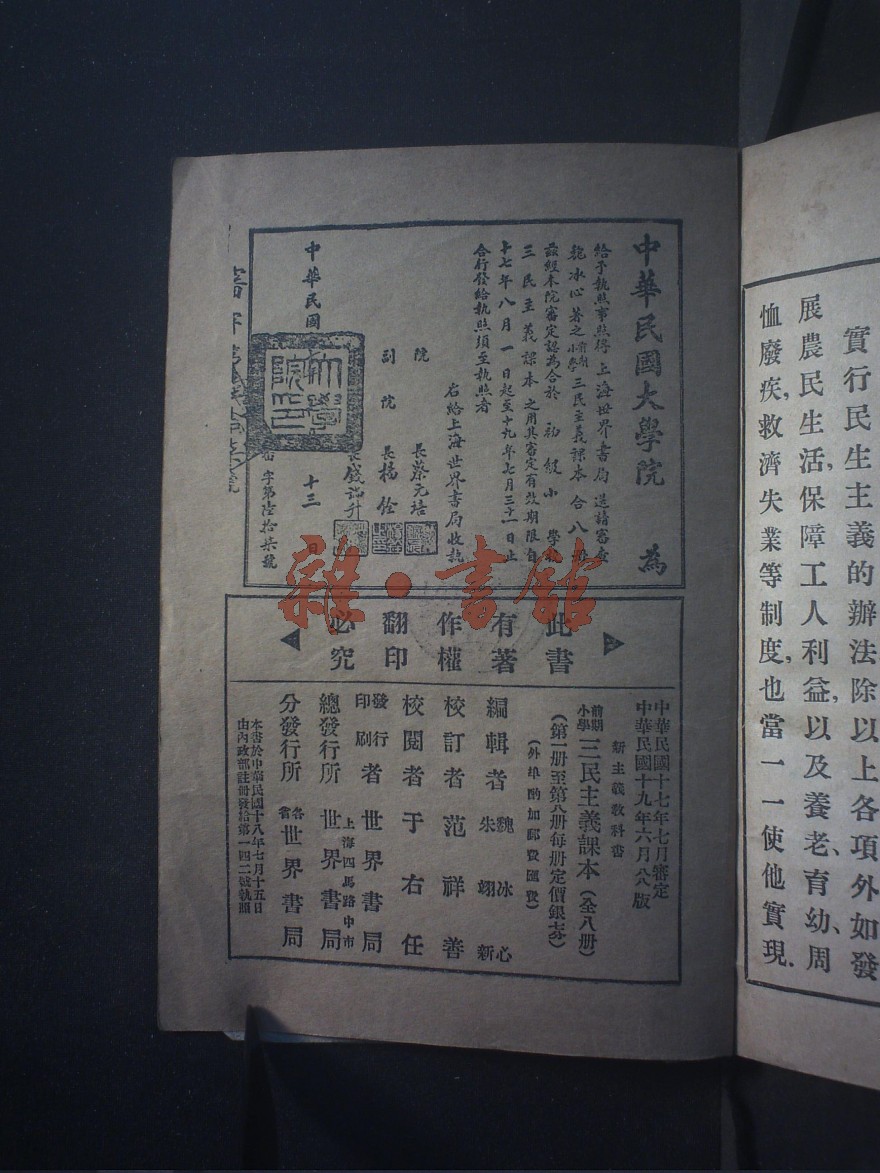 實行民生主義的辦法除以上各項外如發
展農民生活，保障工人利益，以及養老、育幼、周
恤廢疾，救濟失業等制度，也當一一使他實現.
中華民國大學院 為
給予執照事照得上海世界書局送請審查
魏冰心著之前期小學三民主義課本合八冊
茲經本院審定認為合於初級小學校
三民主義課本之用其審定有效期限自
十七年八月一日起至十九年七月三十一日止
合行發給執照須至執照者
右給上海世界書局收執
院長蔡元培
副院長楊銓
長錢端升
中華民國 十三日
字第陸拾柒號
大學院印
雜·書館
此書有著作權翻印必究
中華民國十七年七月審定
中華民國十九年六月八版
新主義教科書
前期小學三民主義課本（全八冊）
（第一冊至第八冊每冊定價銀
（外埠酌加郵費匯費）
編輯者 魏冰心 朱翊新
校訂者 范祥善
校閱者 于右任
發行印刷者 世界書局
上海四馬路中市
總發行所 世界書局
分發行所 各省世界書局
本書於中華民國十八年七月十五日
由內政部註冊發給第一四二號執照